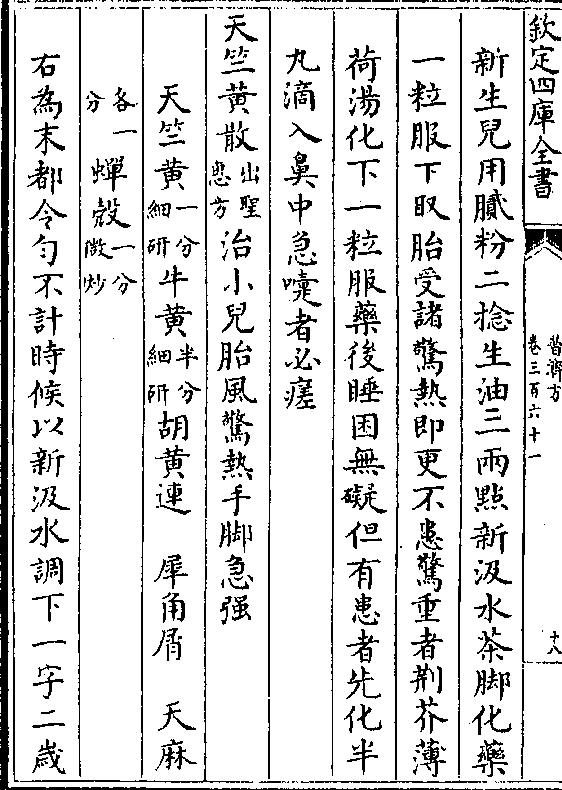 欽定四庫全書
普濟方 卷三百六十一
十八
新生兒用膩粉二捻生油三兩點新汲水茶脚化藥
一粒服下取胎受諸驚熱即更不患驚重者荆芥薄
荷湯化下一粒服藥後睡困無礙但有患者先化半
丸滴入鼻中急嚏者必瘥
天竺黄散出聖惠方治小兒胎風驚熱手脚急强
天竺黄一分細研牛黄半分細研胡黄連 犀角屑 天麻
各一分 蟬殻一分微炒
右為末都令勻不計時候以新汲水調下一字二歲